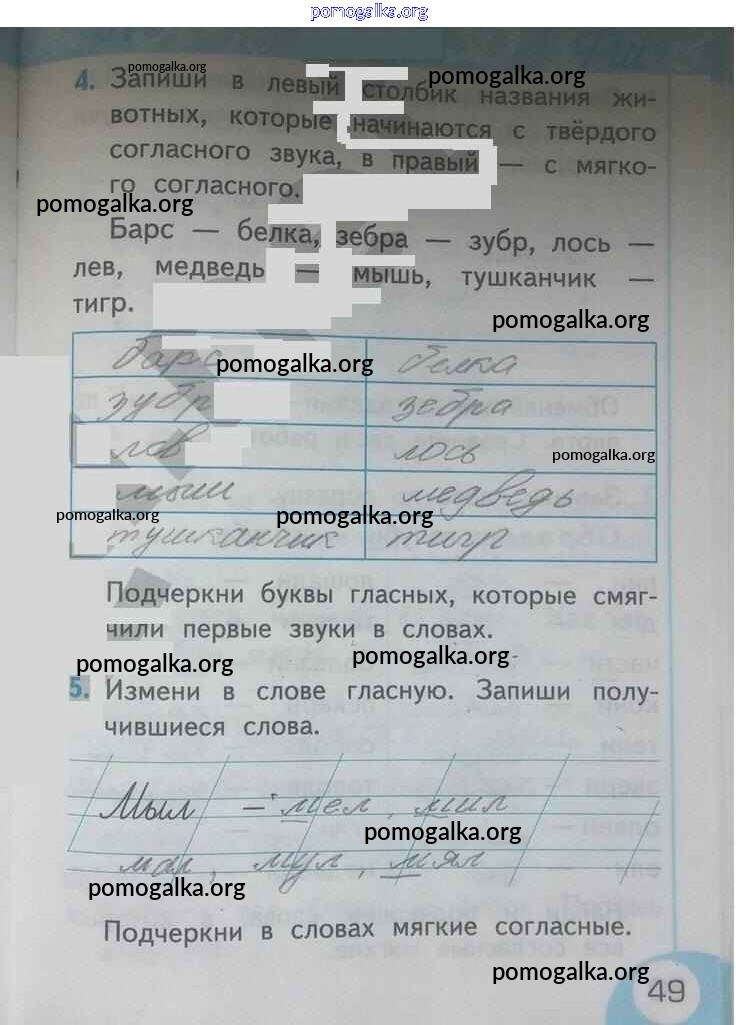 pomogalka.org
pomogalka.org
4. Запиши в левый столбик названия жи-
pomogalka.org
вотных, которые начинаются с твёрдого
согласного звука, в правый — с мягко-
го согласного.
pomogalka.org
Барс — белка, зебра — зубр, лось —
лев, медведь — мышь, тушканчик —
тигр.
pomogalka.org
барс белка
pomogalka.org
зубр зебра
лев лось
pomogalka.org
мыши медведь
pomogalka.org pomogalka.org
тушканчик тигр
Подчеркни буквы гласных, которые смяг-
чили первые звуки в словах.
pomogalka.org pomogalka.org
5. Измени в слове гласную. Запиши полу-
чившиеся слова.
Мыл — мел, мил
pomogalka.org
мал, мул, мял
pomogalka.org
Подчеркни в словах мягкие согласные.
pomogalka.org
49